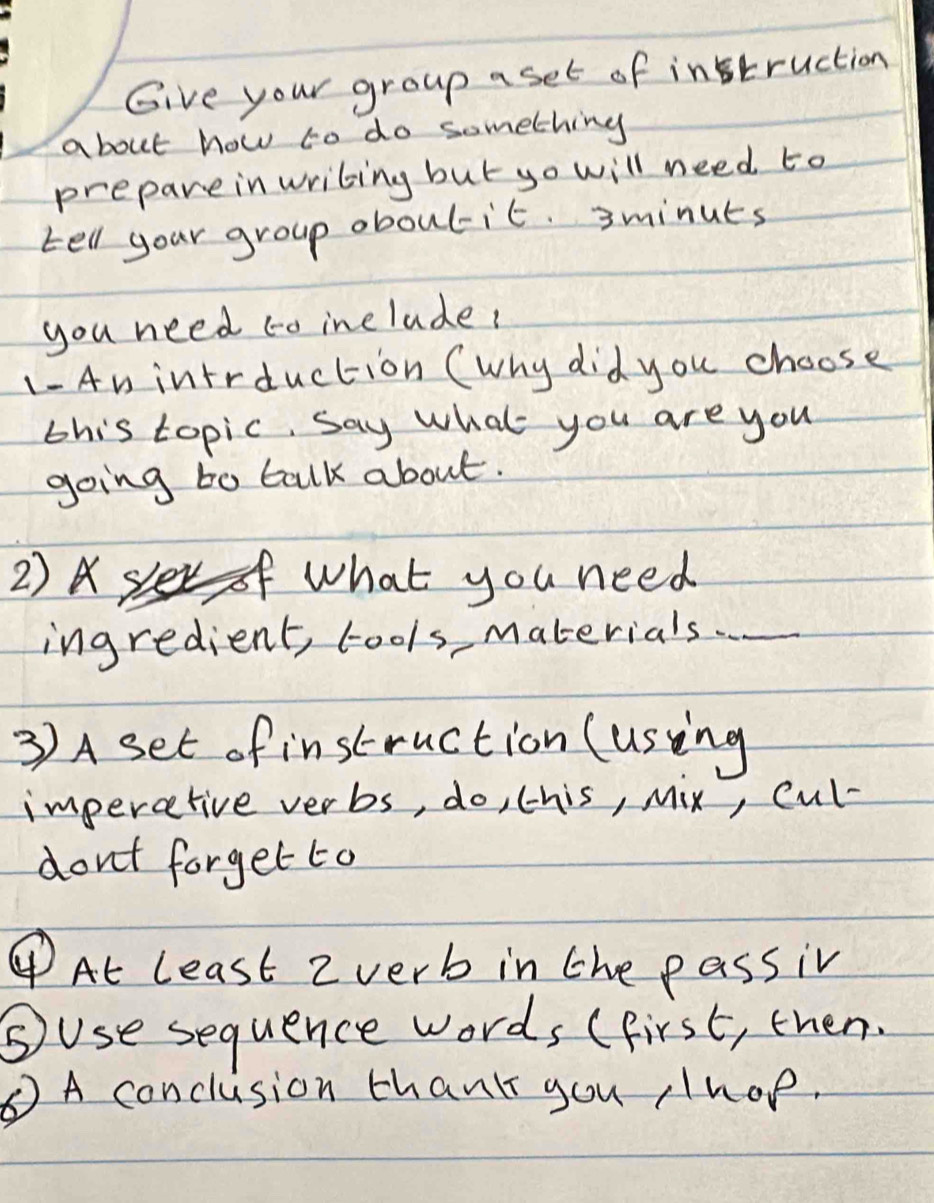 Give your group a set of instruction
about how to do something
prepare in writing but yo will need to
tell your group about it. 3 minuts
you need to include:
1- An intrduction (why did you choose
this topic. Say what you are you
going to talk about.
2) A set of what you need
ingredient, tools, Materials....
3) A set of instruction (using
imperative verbs, do, this, Mix, Cut
dont forget to
④ At least 2 verb in the passiv
⑤ Use sequence words (first, then.
⑥ A conclusion thank you, I hop.